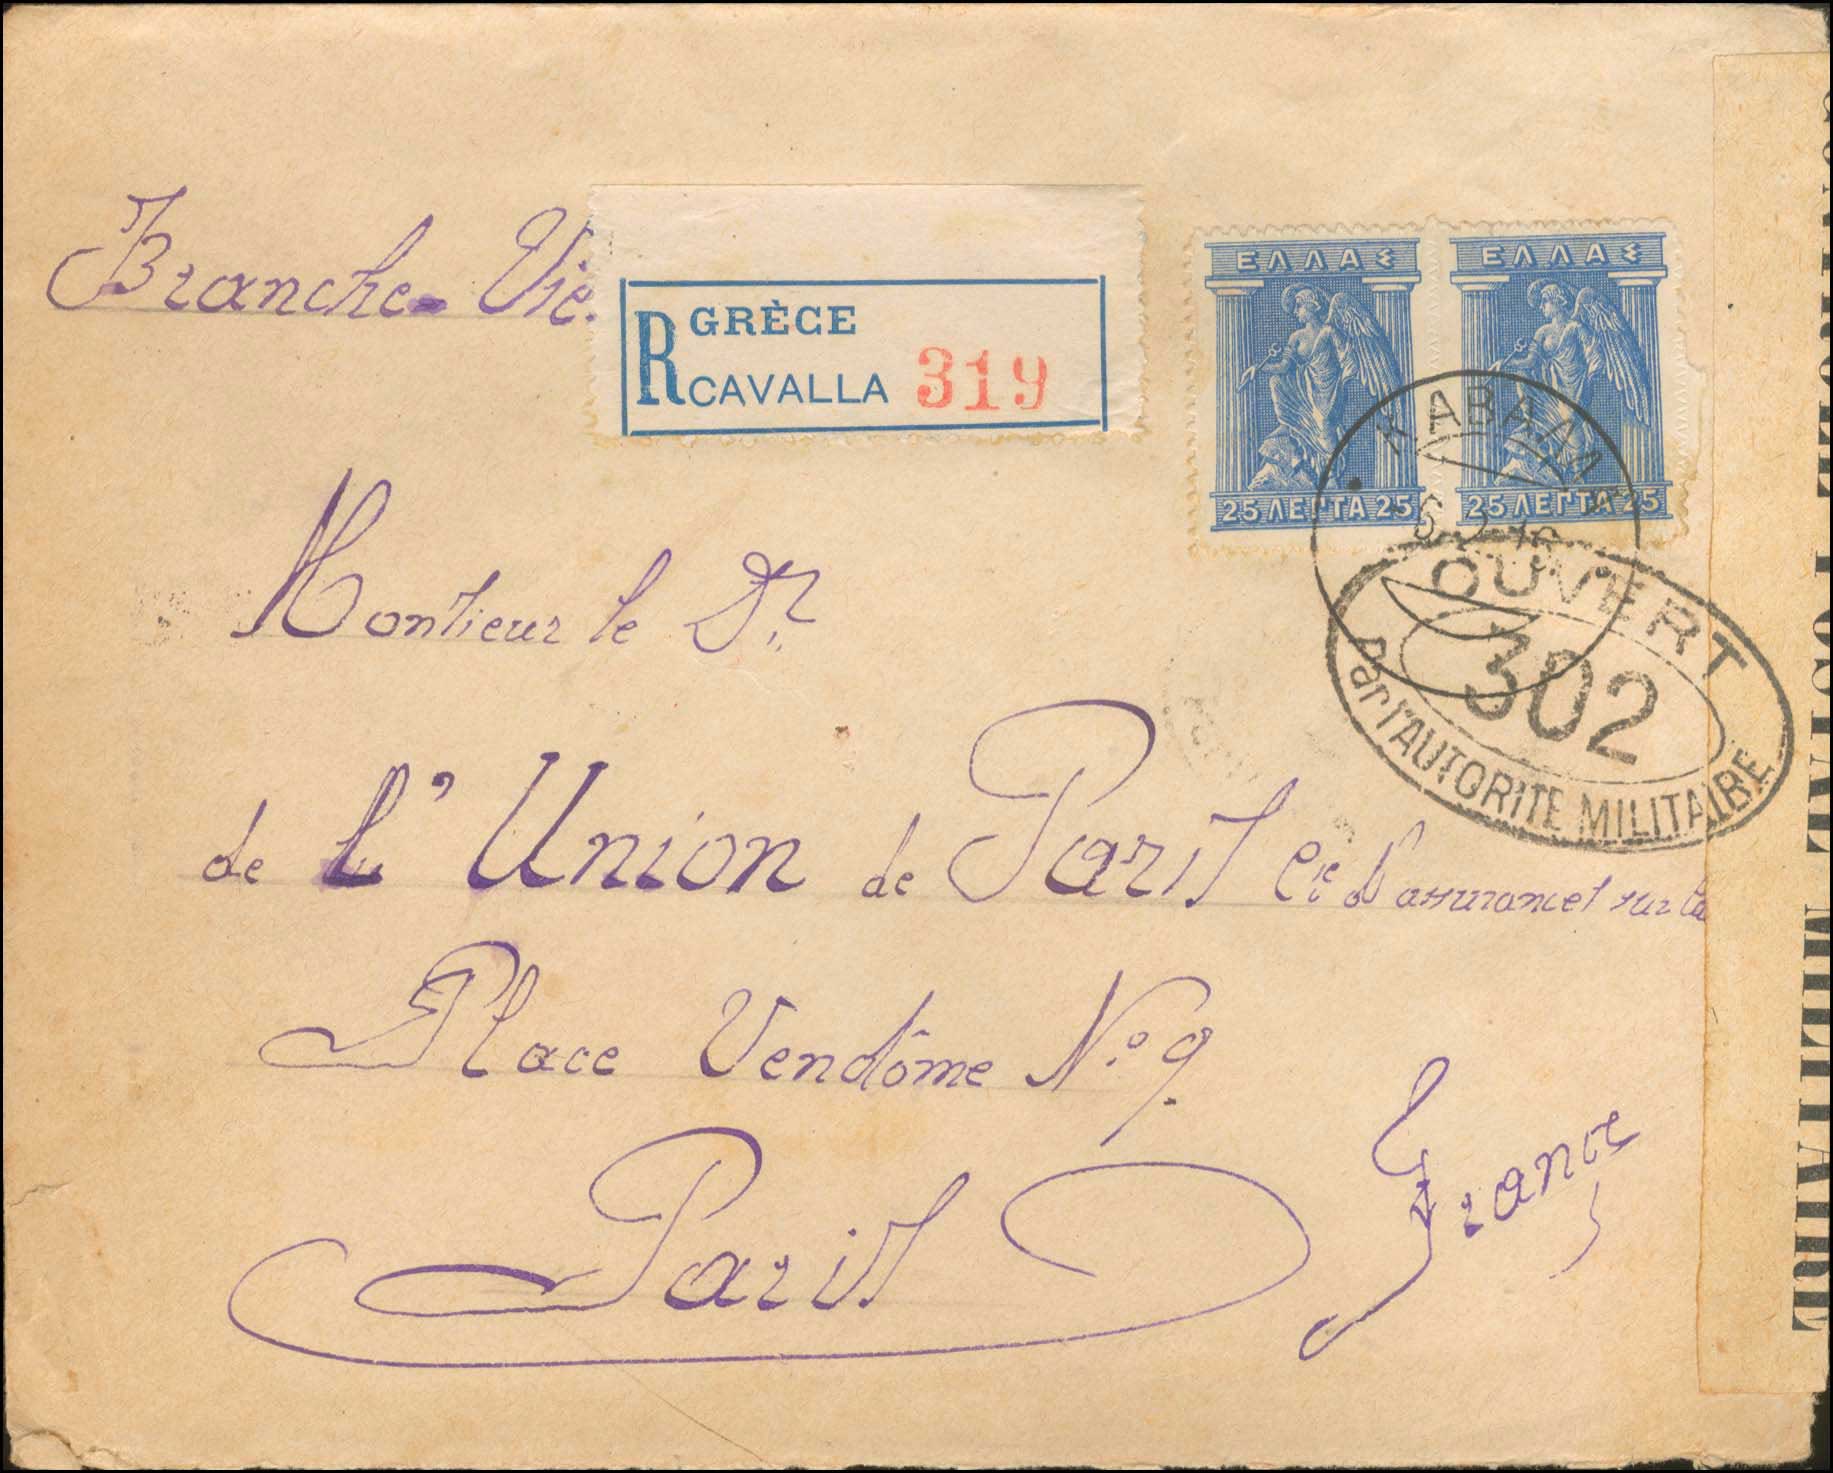 Branche-Vie.
GRÈCE
R CAVALLA 319
ΕΛΛΑΣ
25 ΛΕΠΤΑ 25
ΕΛΛΑΣ
25 ΛΕΠΤΑ 25
ΚΑΒΑΛΛ
OUVERT
302
Par l'AUTORITE MILITAIRE
CONTROLE POSTAL MILITAIRE
Monsieur le Dr.
de l'Union de Paris Cie d'assurances sur la
Place Vendôme No. 9.
Paris
France